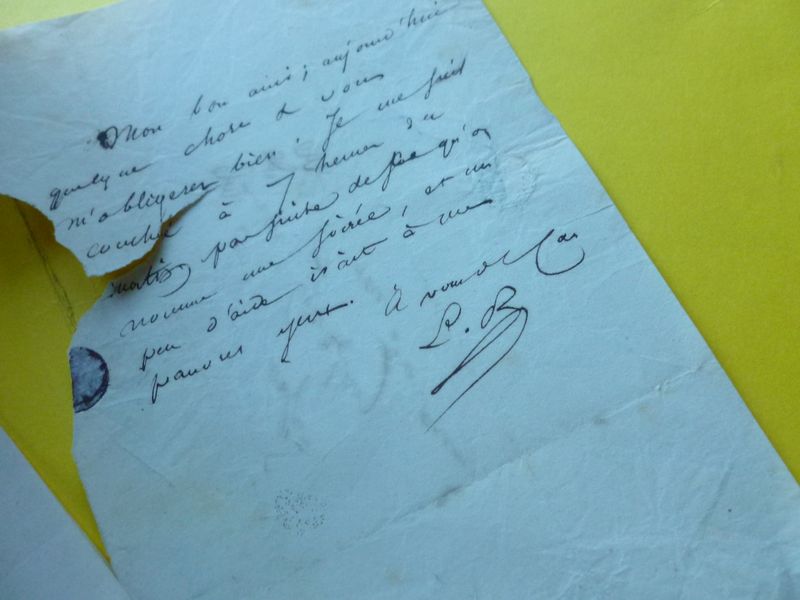 Mon bon ami, aujourd'hui
quelque chose & vous
m'obligerez bien. Je me suis
couché à 7 heures du
matin par suite de ce qu'on
nomme une soirée, et un
peu d'aide irait à mes
pauvres yeux. À vous de
L. B